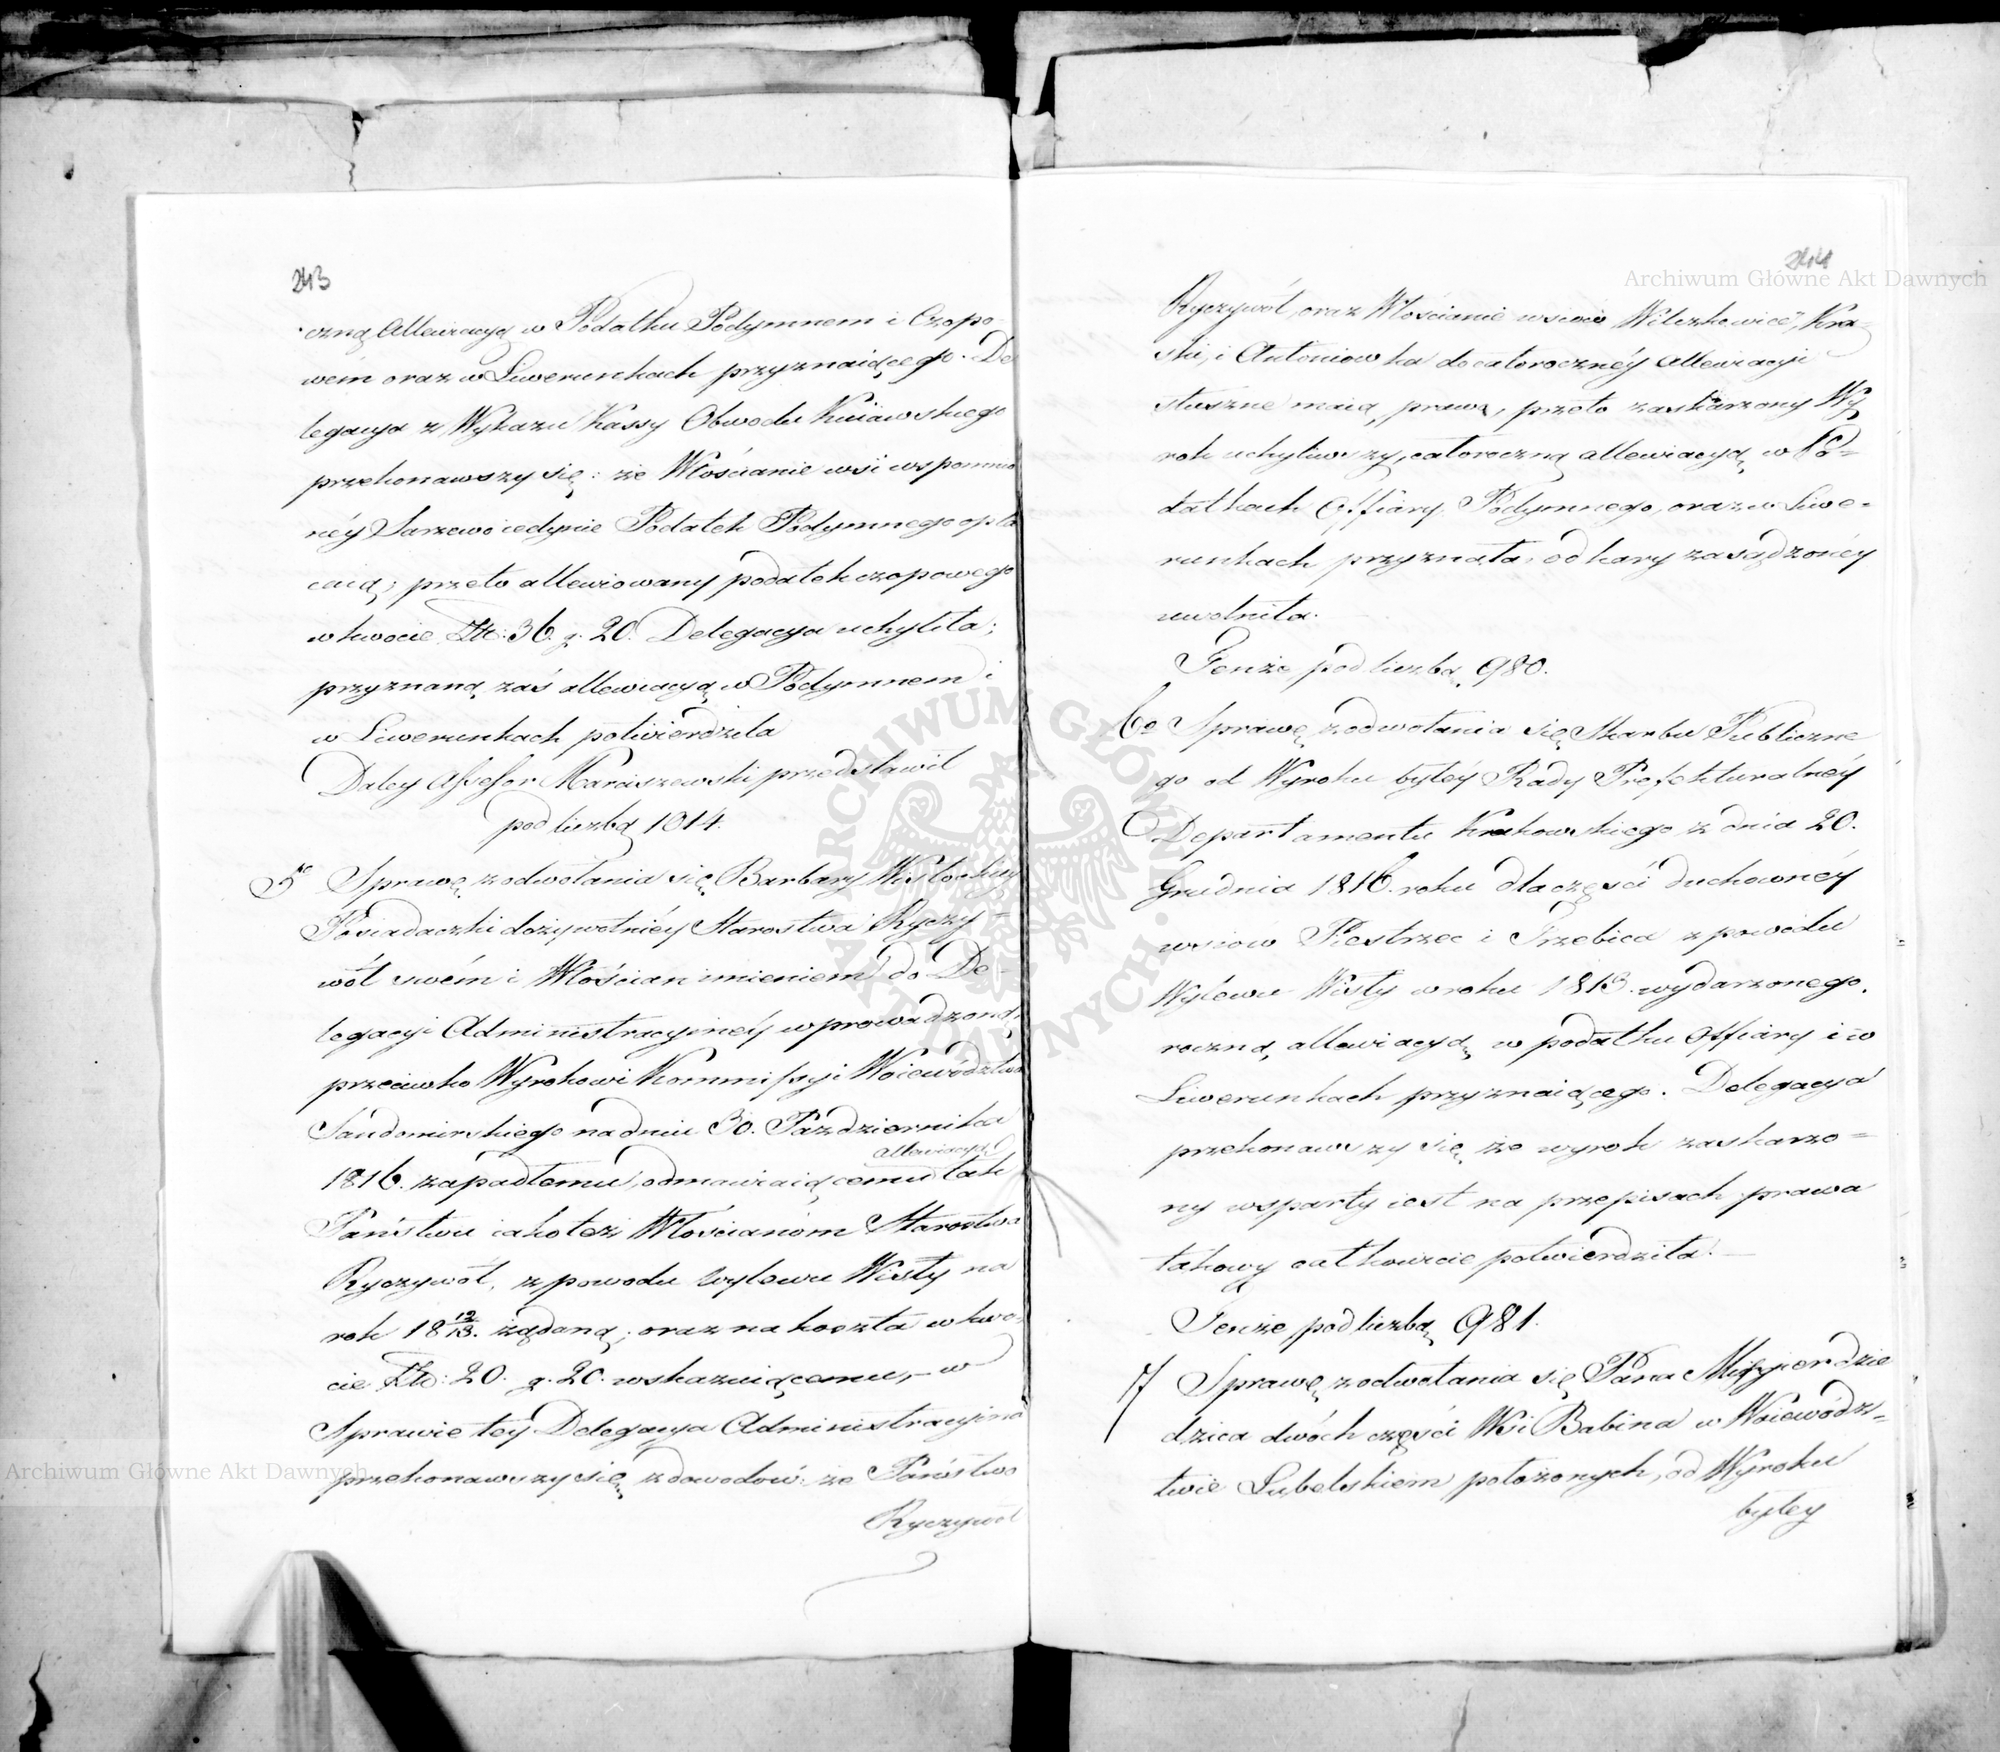 243
czną allewiacyą w Podatku Podymnem i Czopo-
wém oraz w Liwerunkach przyznaiącego. De
legacya z Wykazu Kassy Obwodu Kuiawskiego
przekonawszy się: że Włościanie wsi wspomnio
néy Sarzewo iedynie Podatek Podymnego opła
caią; przeto allewiowany podatek czopowego
w kwocie Złt: 36. g. 20. Delegacya uchyliła;
przyznaną zaś allewiacyą w Podymnem i
w Liwerunkach potwierdziła
Daley Assessor Marciszewski przedstawił
pod liczbą 1014.
5te Sprawę z odwołania się Barbary Wisłockiey
Posiadaczki dożywotniéy Starostwa Ryczy-
wół swém i Włościan imieniem do De-
legacyi Administracyinéy wprowadzoną,
przeciwko Wyrokowi Kommissyi Woiewództwa
Sandomirskiego na dniu 30. Października
allewiacyą
1816. zapadłemu, odmawiaiącemu tak
Państwu iakoteż Włościanóm Starostwa
Ryczywół, z powodu wylewu Wisły na
rok 18 12/13. żądaną; oraz na koszta w kwo-
cie Złt: 20. g. 20. wskazuiącemu, – w
Sprawie téy Delegacya Administracyina
przekonawszy się z dowodów: że Państwo
Ryczywół
244
Ryczywół, oraz Włościanie wsiów Wilczkowice, Kra-
ski, i Antoniowka do całorocznéy allewiacyi
słuszne maią prawa, przeto zaskarzony Wy
rok uchyliwszy, całoroczną allewiacyą w Po-
datkach Offiary, Podymnego, oraz w Liwe-
runkach przyznała, od kary zasądzonéy
uwolniła.
Tenże pod liczbą 980.
6e Sprawę z odwołania się Skarbu Publiczne
go od Wyroku byłéy Rady Prefekturalnéy
Departamentu Krakowskiego z dnia 20.
Grudnia 1816. roku dla części duchownéy
wsiów Piestrzec i Trzebica z powodu
Wylewu Wisły w roku 1813. wydarzonego,
roczną allewiacyą w podatku Offiary i w
Liwerunkach przyznaiącego. Delegacya
przekonawszy się że wyrok zaskarzo-
ny wsparty iest na przepisach prawa
takowy całkowicie potwierdziła. –
Tenże pod liczbą 981.
7 Sprawę z odwołania się Pana
dzica dwóch części Wsi Babina w Woiewódz-
twie Lubelskiem położonych, od Wyroku
byłey
Archiwum Główne Akt Dawnych
Archiwum Główne Akt Dawnych
ARCHIWUM GŁÓWNE AKT DAWNYCH